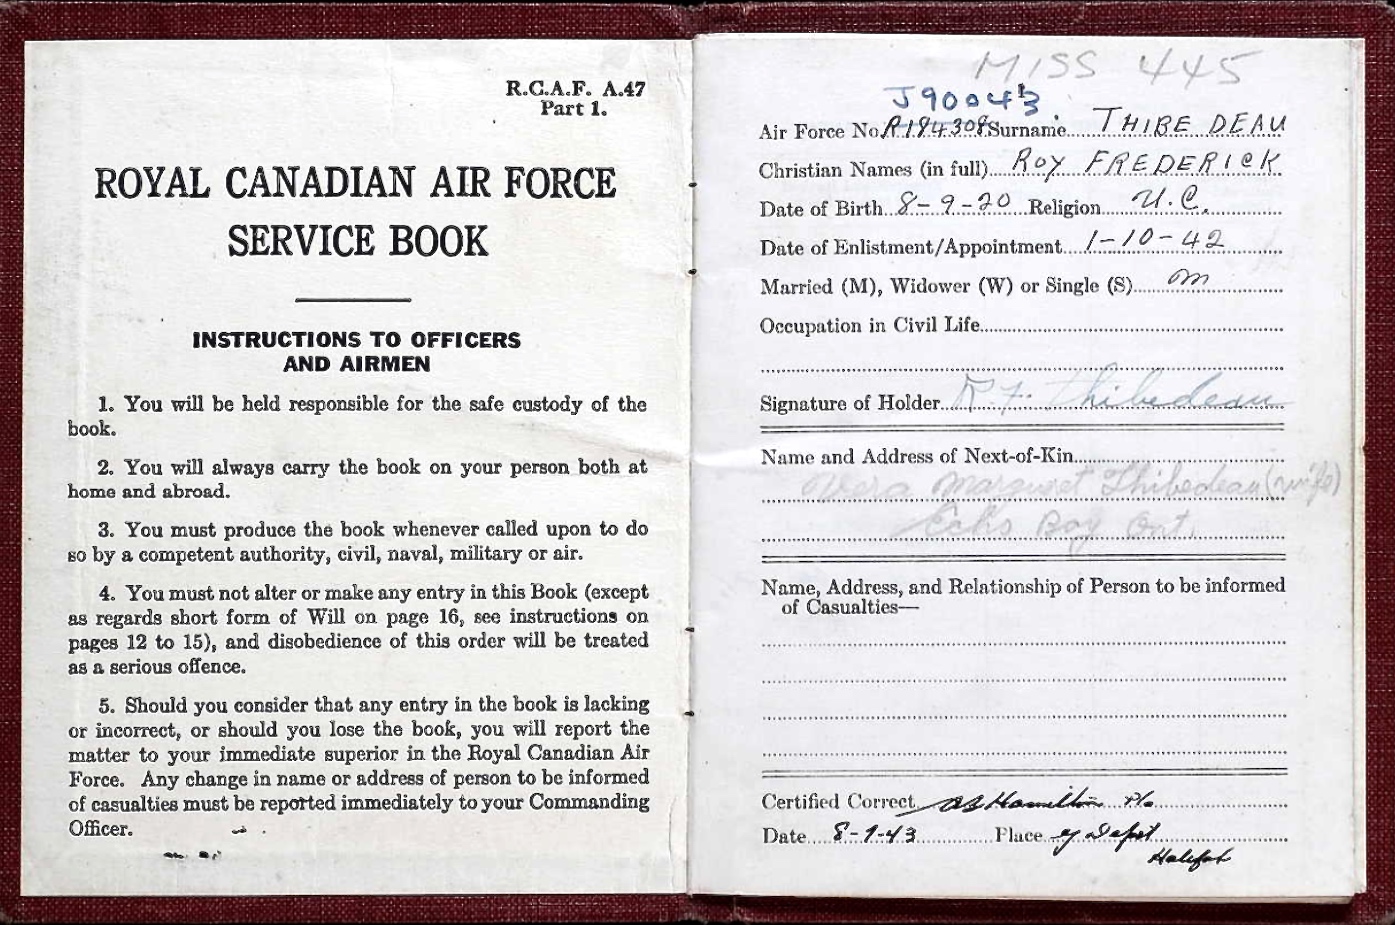 R.C.A.F. A.47
Part 1.
ROYAL CANADIAN AIR FORCE
SERVICE BOOK
INSTRUCTIONS TO OFFICERS
AND AIRMEN
1. You will be held responsible for the safe custody of the
book.
2. You will always carry the book on your person both at
home and abroad.
3. You must produce the book whenever called upon to do
so by a competent authority, civil, naval, military or air.
4. You must not alter or make any entry in this Book (except
as regards short form of Will on page 16, see instructions on
pages 12 to 15), and disobedience of this order will be treated
as a serious offence.
5. Should you consider that any entry in the book is lacking
or incorrect, or should you lose the book, you will report the
matter to your immediate superior in the Royal Canadian Air
Force. Any change in name or address of person to be informed
of casualties must be reported immediately to your Commanding
Officer.
MISS 445
J90043
Air Force No. R184308 Surname THIBEDEAU
Christian Names (in full) ROY FREDERICK
Date of Birth 8-9-20 Religion U.C.
Date of Enlistment/Appointment 1-10-42
Married (M), Widower (W) or Single (S) M
Occupation in Civil Life
Signature of Holder R.F. Thibedeau
Name and Address of Next-of-Kin
Vera Margaret Thibedeau (wife)
Echo Bay Ont.
Name, Address, and Relationship of Person to be informed
of Casualties—
Certified Correct Hamilton
Date 8-9-43 Place Y Depot
Halifax